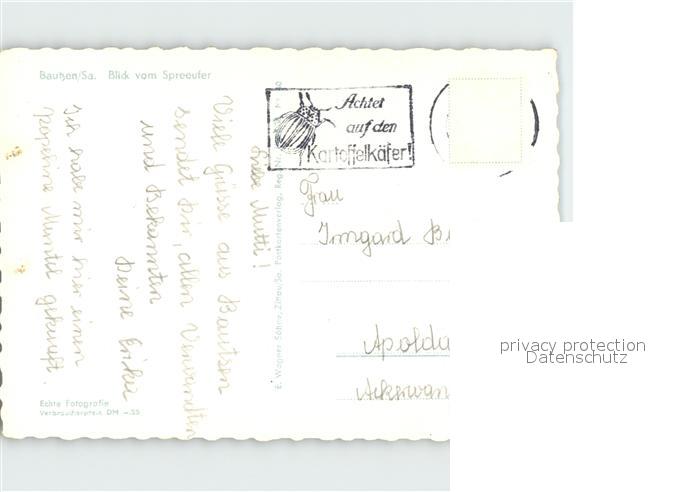 Bautzen/Sa. Blick vom Spreeufer
Achtet
auf den
Kartoffelkäfer!
Liebe Mutti!
Viele Grüsse aus Bautsen
sendet Dir, allen Verwandten
und Bekannten
Deine Erika
Ich habe mir hier einen
Popeline Mantel gekauft.
Frau
Irmgard
Apolda
E. Wagner Söhne, Zittau/Sa. Postkartenverlag, Reg.-Nr.
Echte Fotografie
Verbraucherpreis DM -.35
privacy protection
Datenschutz